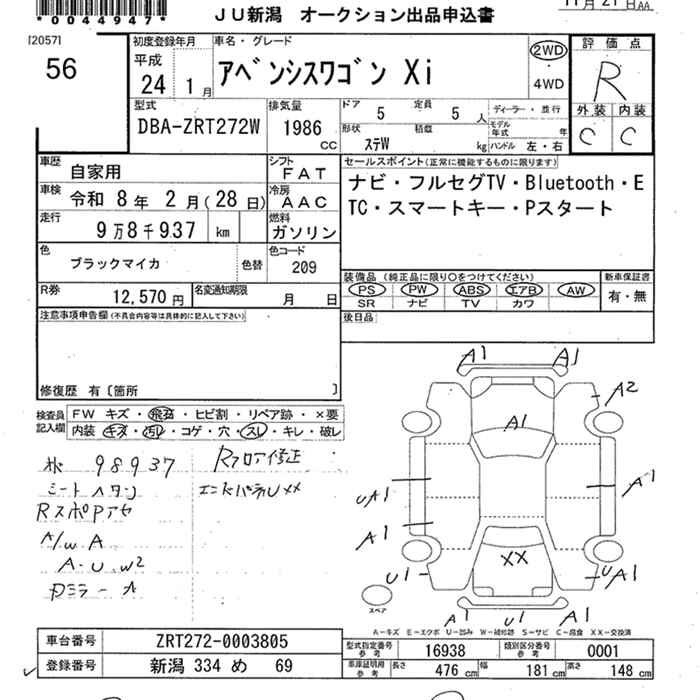 *0044947*
JU新潟 オークション出品申込書
11月21日AA
[2057]
56
初度登録年月
平成
24 1月
車名・グレード
アベンシスワゴン Xi
2WD
4WD
評価点
R
外装 内装
C C
型式
DBA-ZRT272W
排気量
1986
CC
ドア 5 定員 5 人
形状 ステW 積載 kg
ディーラー・並行
モデル年式 年
ハンドル 左・右
車歴 自家用
シフト FAT
車検 令和 8年 2月(28日)
冷房 AAC
走行 9万8千937 km
燃料 ガソリン
色 ブラックマイカ 色替
色コード 209
R券 12,570円
名変通知期限 月 日
セールスポイント(正常に機能するものに限ります)
ナビ・フルセグTV・Bluetooth・E
TC・スマートキー・Pスタート
装備品(純正品に限り○をつけてください)
PS PW ABS エアB AW
SR ナビ TV カワ
新車保証書
有・無
後日品
注意事項申告欄(不具合内容等は具体的に記入して下さい)
修復歴 有〔箇所 〕
検査員記入欄
FW キズ・飛石・ヒビ割・リペア跡・×要
内装 キズ・汚れ・コゲ・穴・スレ・キレ・破レ
98937
Rフロア修正
シートヘタリ
エンドパネルUXX
A/W A
A・U・W2
ミラーA
A1 A1
A2
A1
UA1
A1
A1
XX
U1
UA1
A1 U1 A1
スペア
A-キズ E-エクボ U-凹み W-補修跡 S-サビ C-腐食 XX-交換済
車台番号 ZRT272-0003805
登録番号 新潟 334 め 69
型式指定番号 参考 16938
類別区分番号 参考 0001
車庫証明用 参考 長さ 476 cm 幅 181 cm 高さ 148 cm